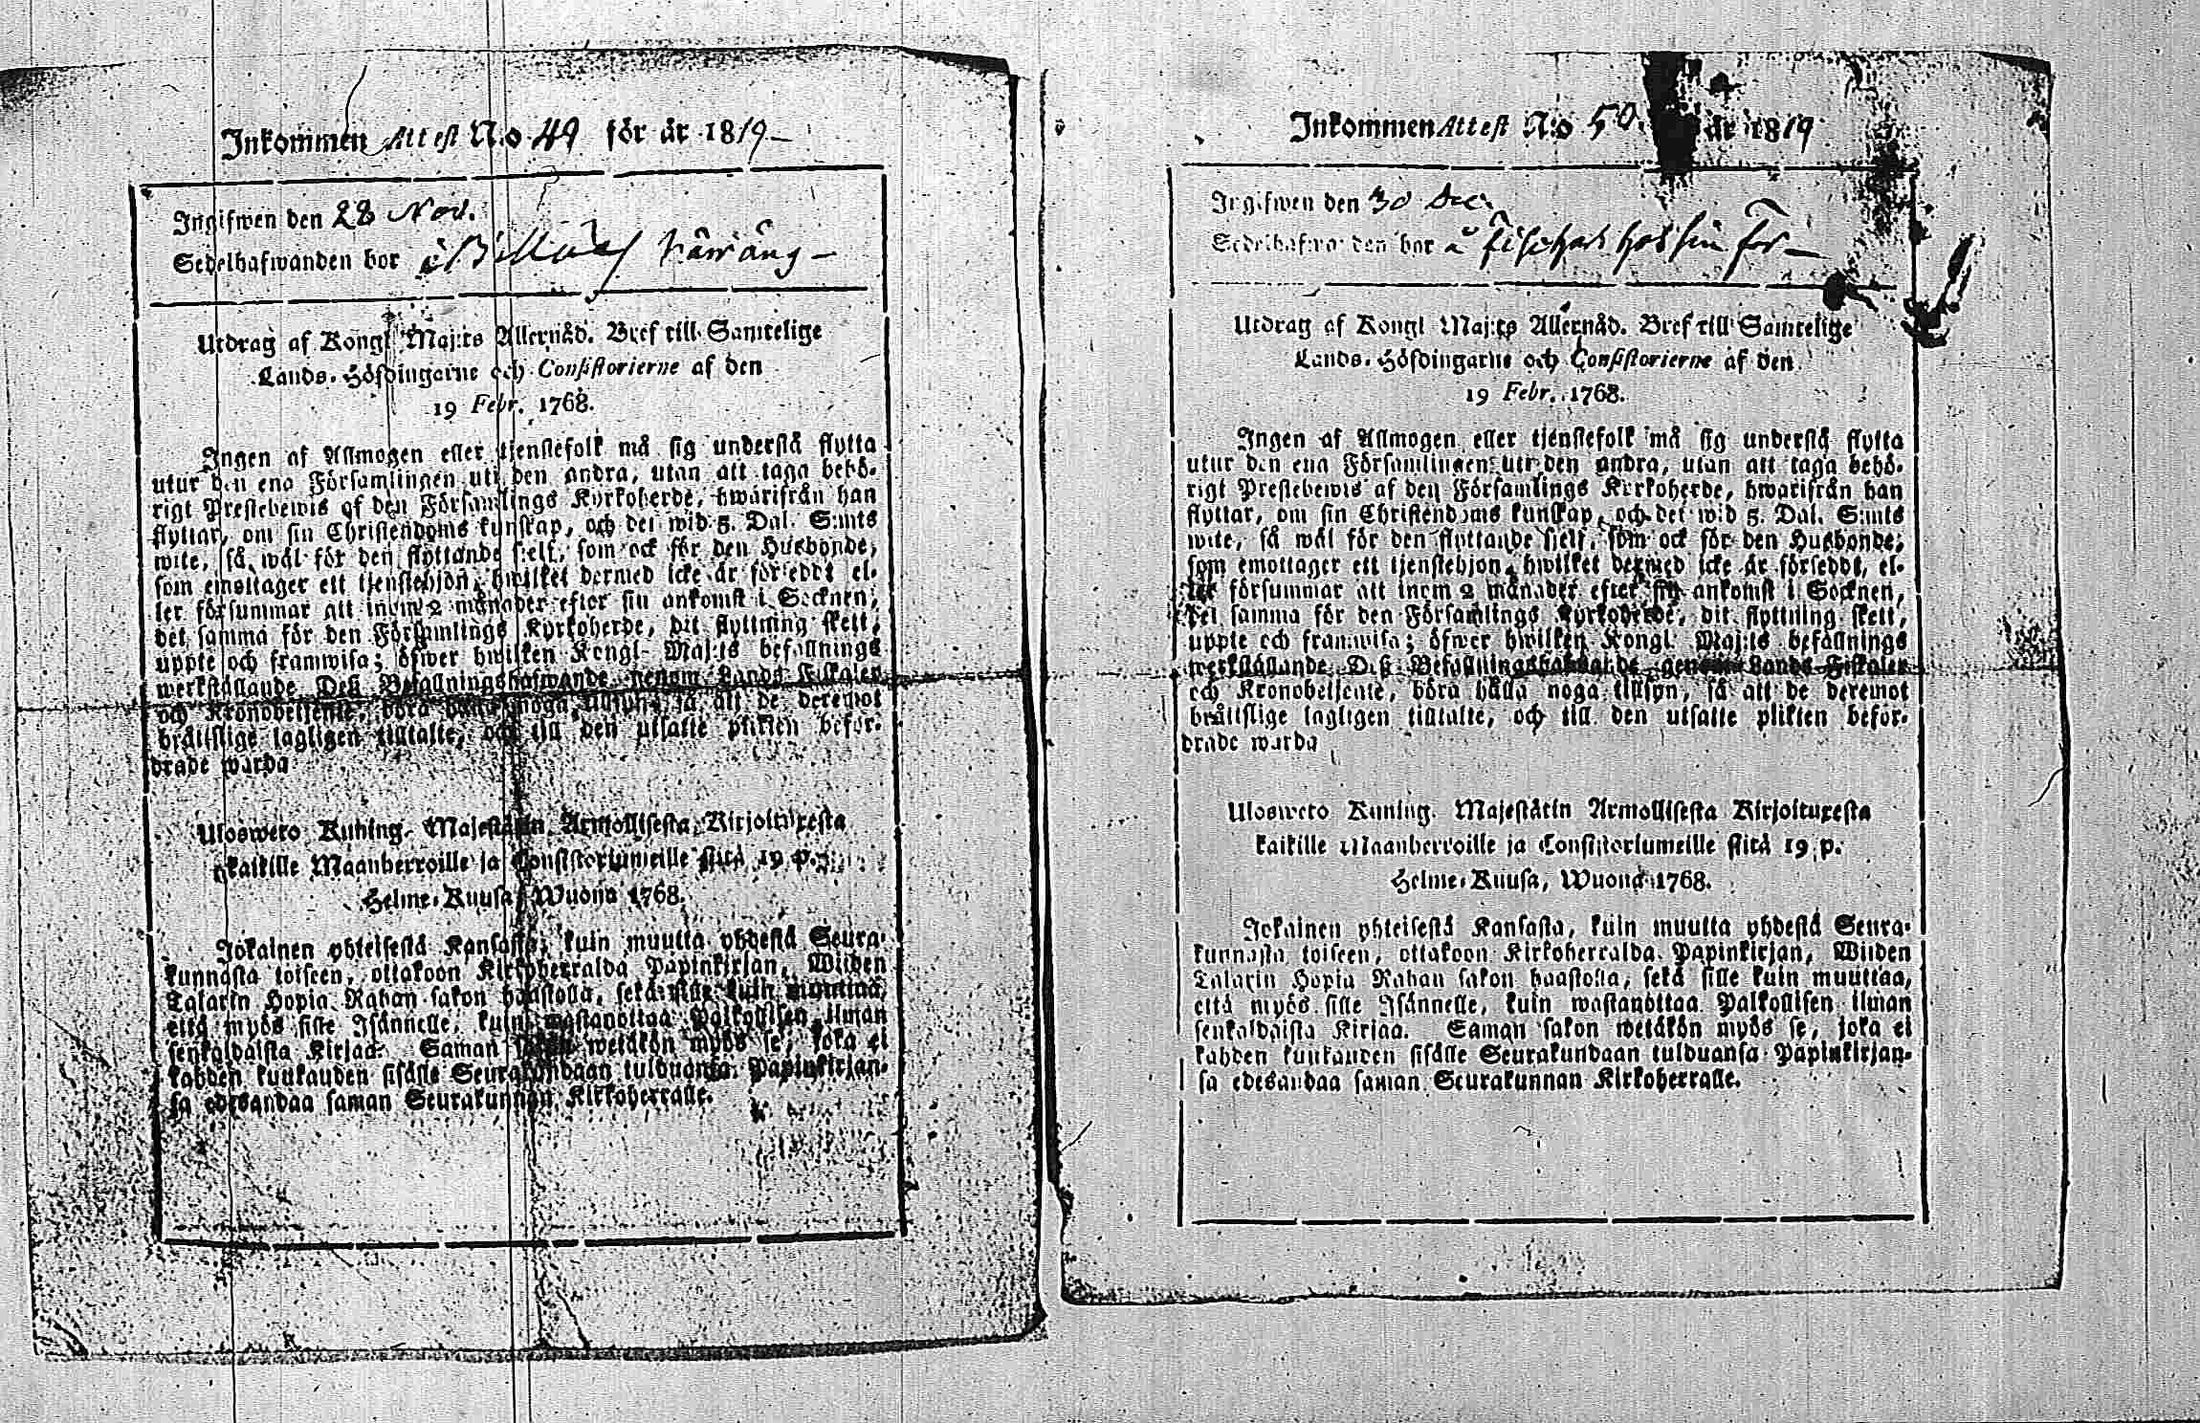 Inkommen Attest N:o 49 för år 1819
Ingifwen den 28 Nov.
Sedelhafwanden bor i
Utdrag af Kongl Maj:ts Allernåd. Bref till Samtelige
Lands-Höfdingarne och Consistorierne af den
19 Febr. 1768.
Ingen af Allmogen eller tjenstefolk må sig understå flytta
utur den ena Församlingen uti den andra, utan att taga behö-
rigt Prestebewis af den Församlings Kyrkoherde, hwarifrån han
flyttar, om sin Christendoms kunskap, och det wid 5. Dal. S:mts
wite, så wäl för den flyttande sielf, som ock för den Husbonde,
som emottager ett tjenstehjon, hwilket dermed icke är försedt, el-
ler försummar att inom 2 månader efter sin ankomst i Socknen,
det samma för den Församlings Kyrkoherde, dit flyttning skett,
uppte och framwisa; öfwer hwilken Kongl. Maj:ts befallnings
werkställande Deß Befallningshafwande genom Lands Fiskaler
och Kronobetjente, böra hålla noga tillsyn, så att de deremot
bråttslige lagligen tilltalte, och till den utsatte plikten befor-
drade warda
Uloswcto Kuning. Majestätin Armollisesta Kirjoituxesta
kaikille Maanherroille ja Consistoriumeille siitä 19 p.
Helme-Kuusa, Wuona 1768.
Jokainen yhteisestä Kansasta, kuin muutta yhdestä Seura-
kunnasta toiseen, ottakoon Kirkoherralda Papinkirjan, Wiiden
Talarin Hopia Rahan sakon haastolla, sekä sille kuin muuttaa,
että myös sille Isännelle, kuin wastanottaa Palkollisen ilman
senkaldaista Kirjaa. Saman sakon wetäkön myös se, joka ei
kahden kuukauden sisälle Seurakundaan tulduansa Papinkirjan-
sa edesandaa saman Seurakunnan Kirkoherralle.
Inkommen Attest N:o 50 år 1819
Ingifwen den 30 Dec.
Sedelhafwanden bor å
Utdrag af Kongl Maj:ts Allernåd. Bref till Samtelige
Lands-Höfdingarne och Consistorierne af den
19 Febr. 1768.
Ingen af Allmogen eller tjenstefolk må sig understå flytta
utur den ena Församlingen uti den andra, utan att taga behö-
rigt Prestebewis af den Församlings Kyrkoherde, hwarifrån han
flyttar, om sin Christendoms kunskap, och det wid 5. Dal. S:mts
wite, så wäl för den flyttande sielf, som ock för den Husbonde,
som emottager ett tjenstehjon, hwilket dermed icke är försedt, el-
ler försummar att inom 2 månader efter sin ankomst i Socknen,
det samma för den Församlings Kyrkoherde, dit flyttning skett,
uppte och framwisa; öfwer hwilken Kongl. Maj:ts befallnings
werkställande Deß Befallningshafwande genom Lands Fiskaler
och Kronobetjente, böra hålla noga tillsyn, så att de deremot
bråttslige lagligen tilltalte, och till den utsatte plikten befor-
drade warda
Uloswcto Kuning. Majestätin Armollisesta Kirjoituxesta
kaikille Maanherroille ja Consistoriumeille siitä 19 p.
Helme-Kuusa, Wuona 1768.
Jokainen yhteisestä Kansasta, kuin muutta yhdestä Seura-
kunnasta toiseen, ottakoon Kirkoherralda Papinkirjan, Wiiden
Talarin Hopia Rahan sakon haastolla, sekä sille kuin muuttaa,
että myös sille Isännelle, kuin wastanottaa Palkollisen ilman
senkaldaista Kirjaa. Saman sakon wetäkön myös se, joka ei
kahden kuukauden sisälle Seurakundaan tulduansa Papinkirjan-
sa edesandaa saman Seurakunnan Kirkoherralle.